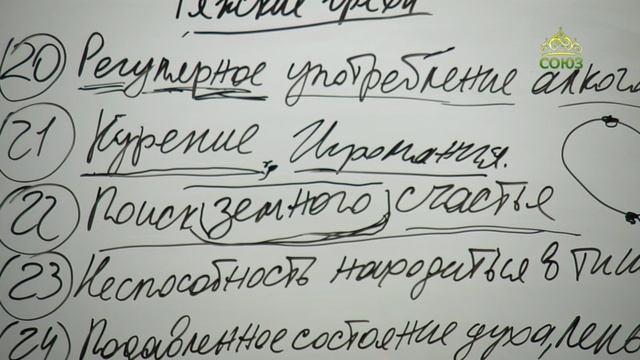 Тяжкие грехи
СОЮЗ
20 Регулярное употребление алкого
21 Курение, Игромания.
22 Поиск земного счастья
23 Неспособность находиться в тиш
24 Подавленное состояние духа, лень